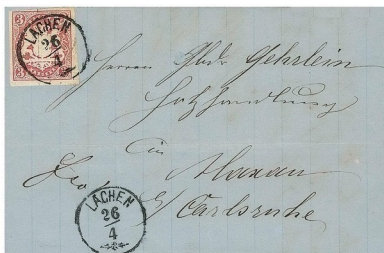 3
LACHEN
26
4
Herren Gebr. Gehrlein
Holzhandlung
in
Maxau
Carlsruhe
LACHEN
26
4